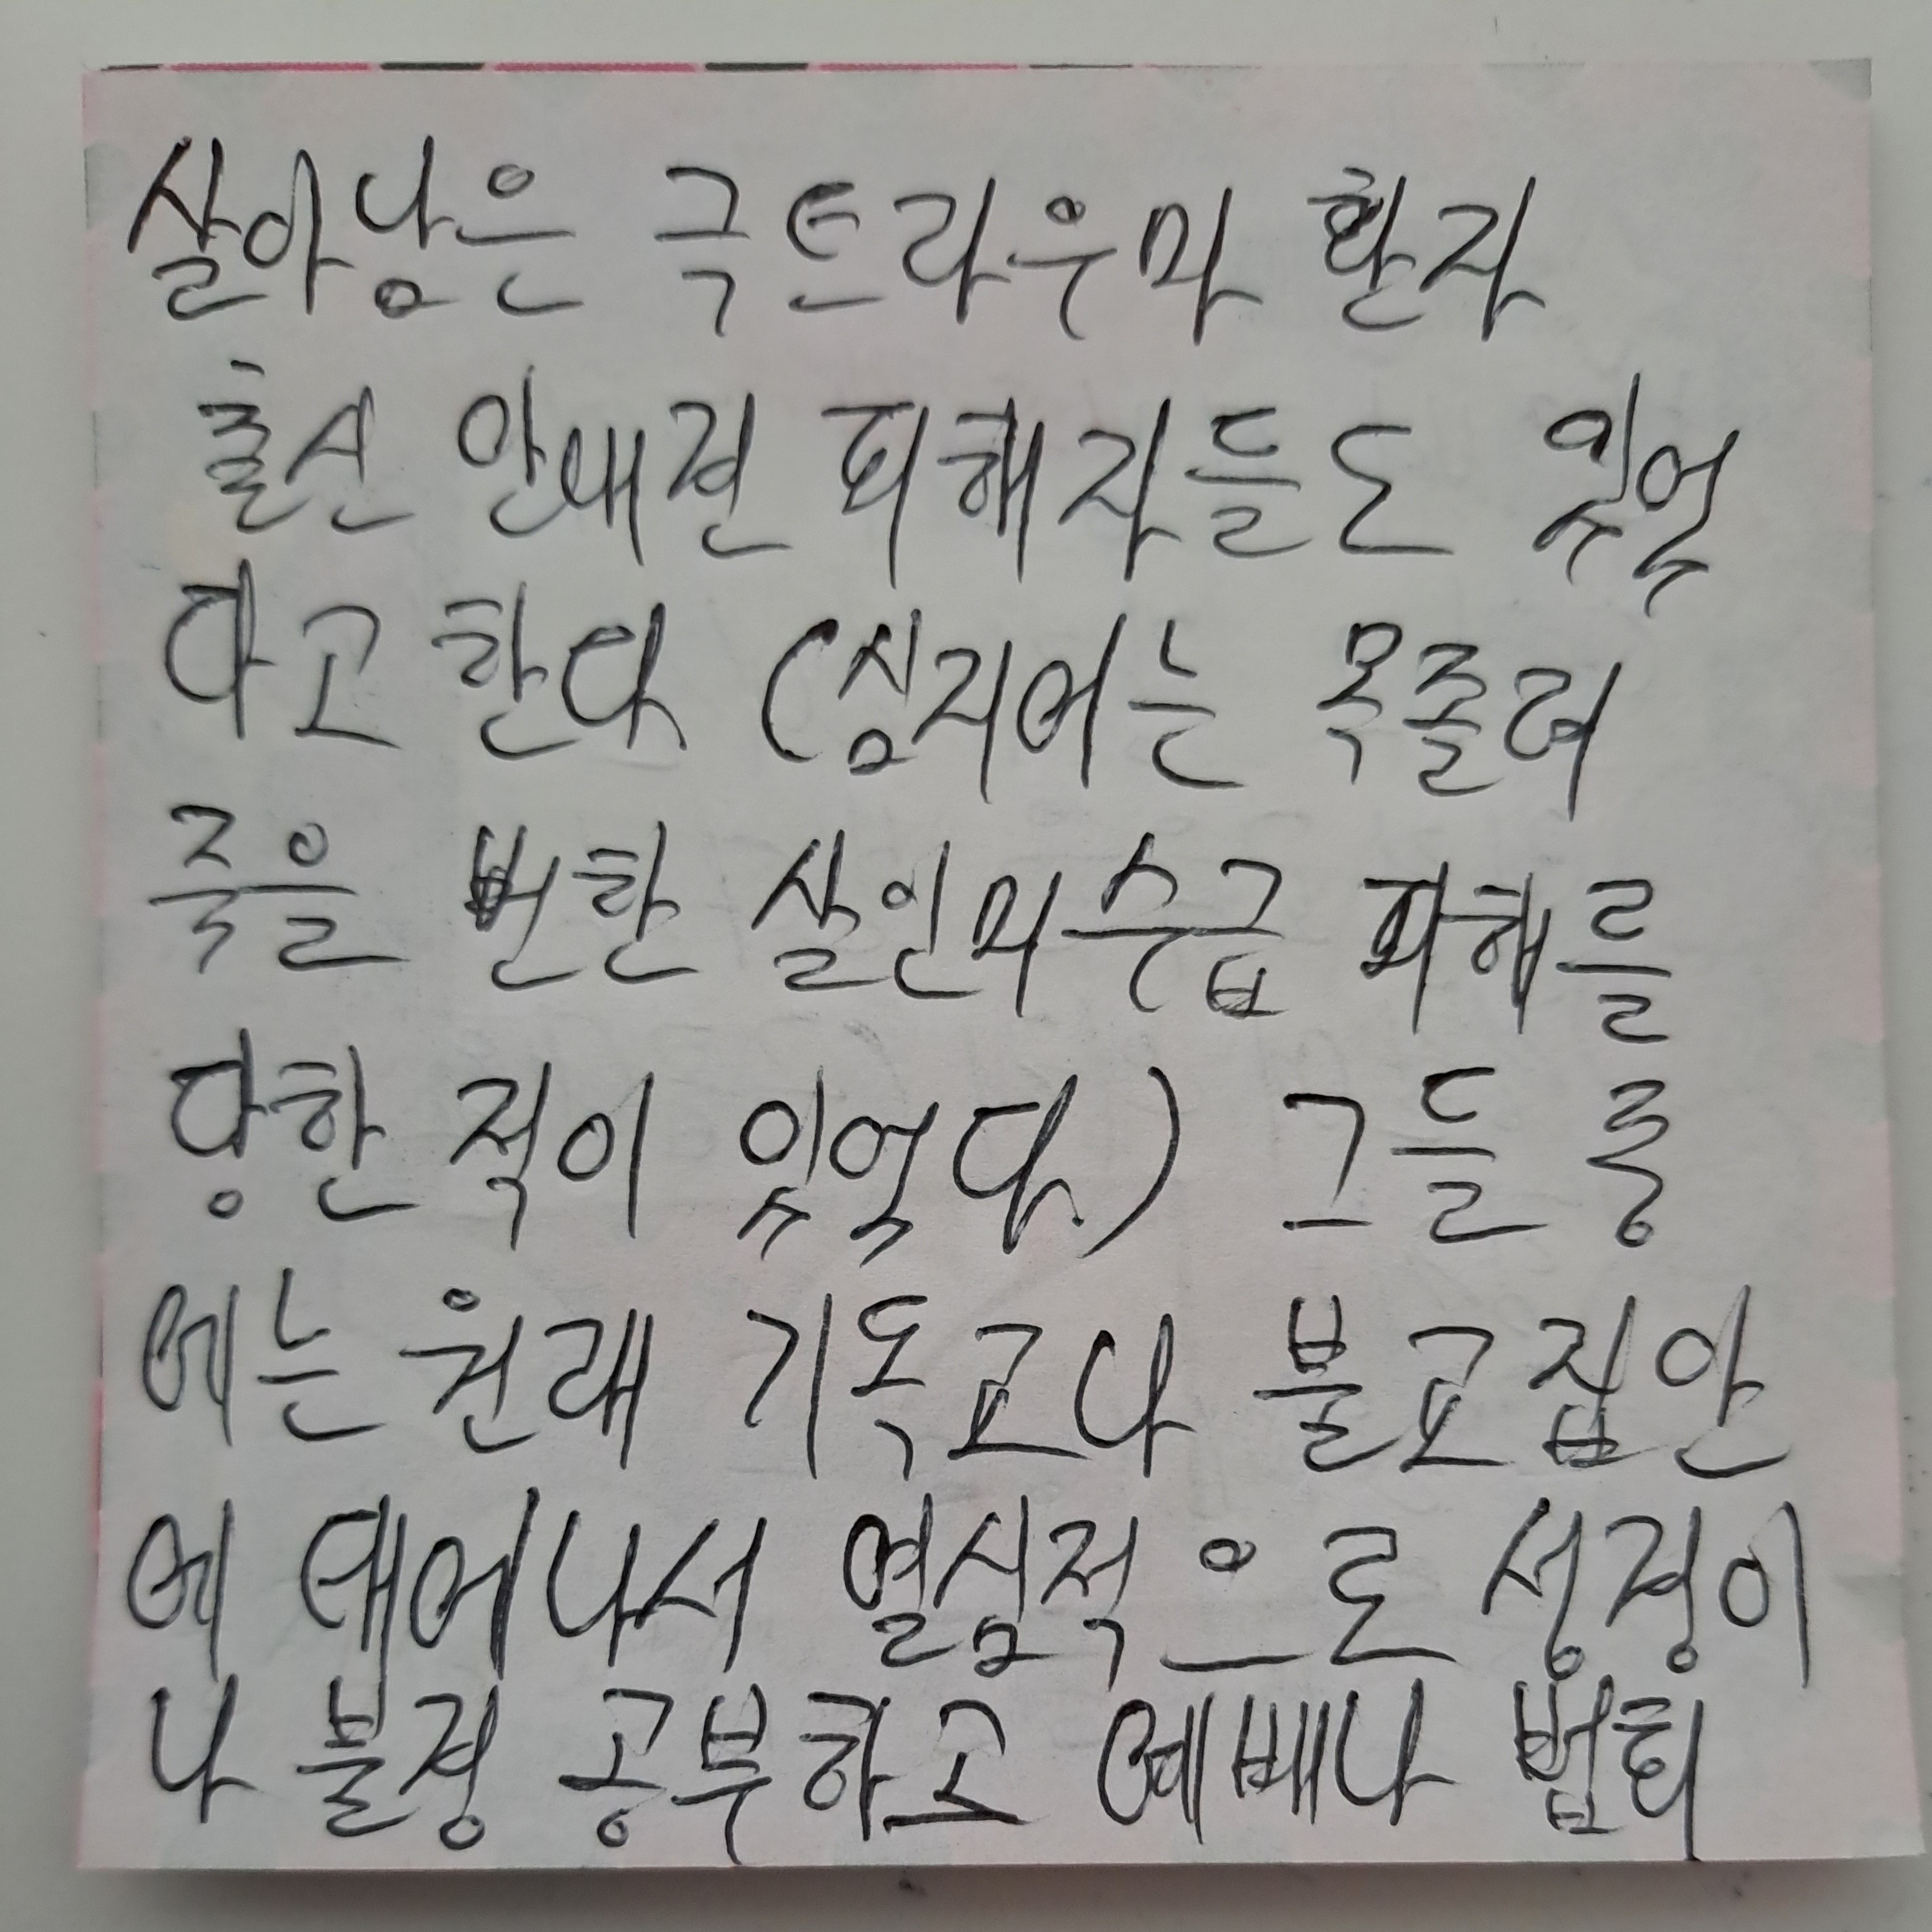 살아남은 극트라우마 환자
출신 안내견 피해자들도 있었
다고 한다. (심지어는 목졸려
죽을 뻔한 살인미수급 피해를
당한 적이 있었다.) 그들 중
에는 원래 기독교나 불교집안
에 태어나서 열심적으로 성경이
나 불경 공부하고 예배나 법회